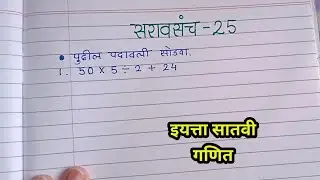 सरावसंच - 25
• पुढील पदावली सोडवा.
1. 50 × 5 ÷ 2 + 24
इयत्ता सातवी
गणित